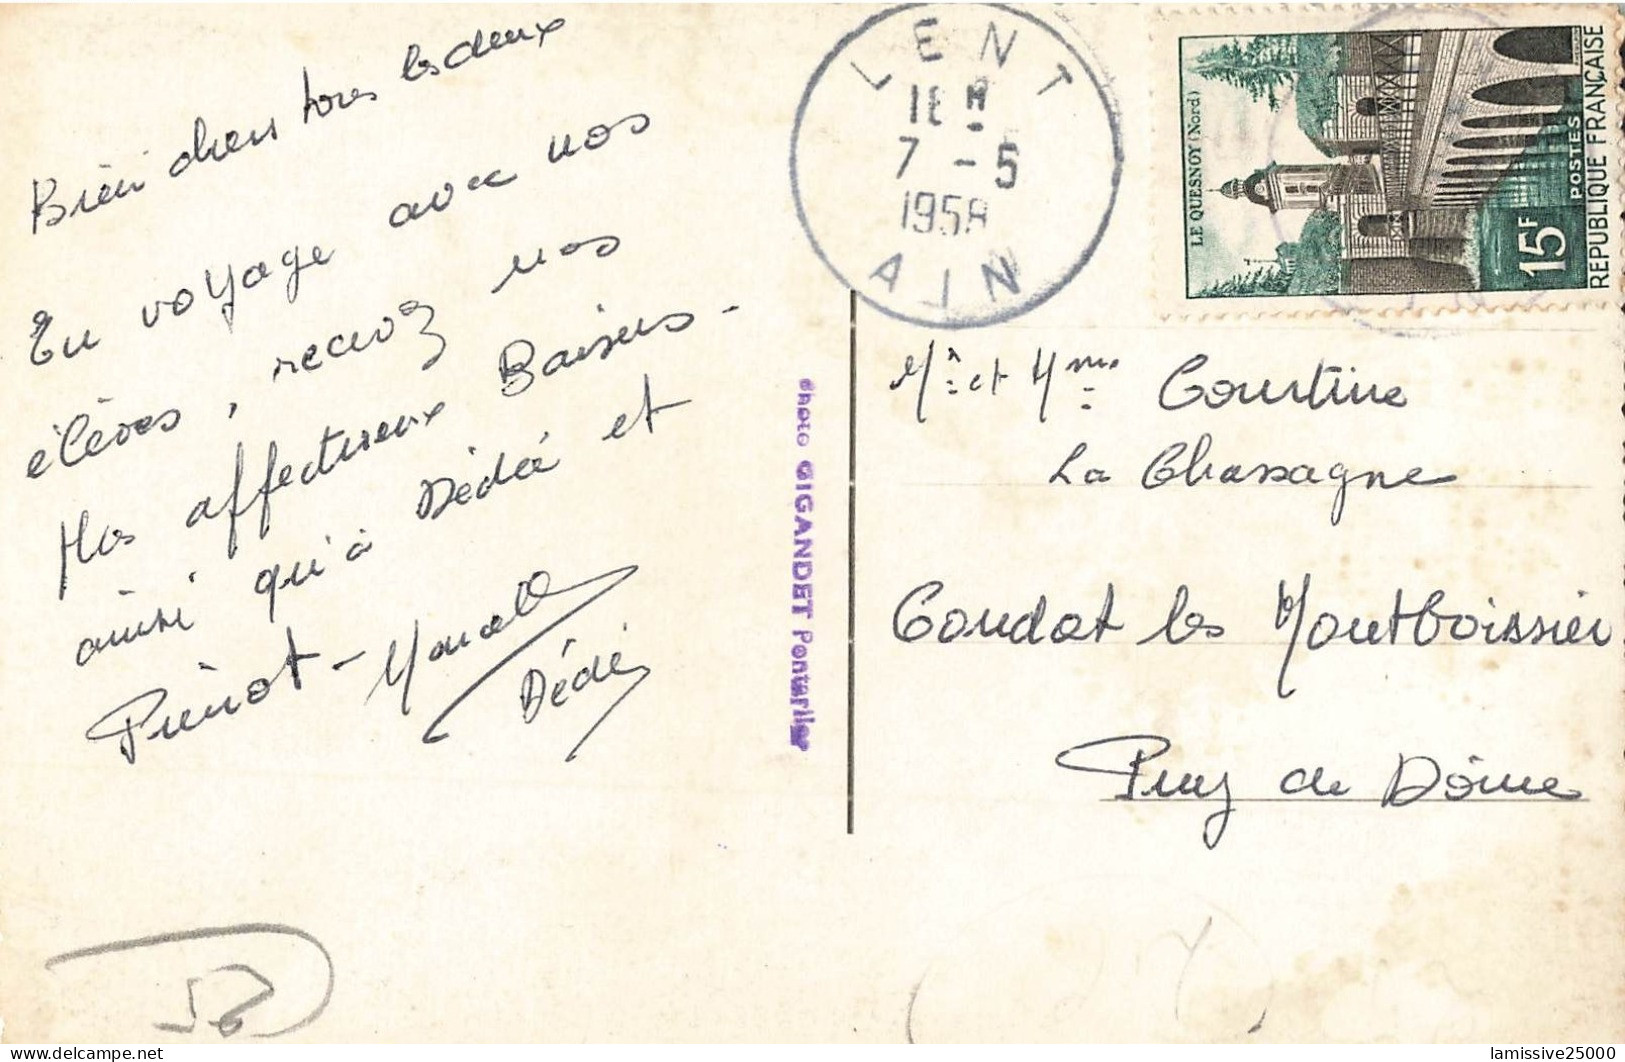 Bien chers tous les deux
En voyage avec nos
élèves, recevez nos
Nos affectueux Baisers -
ainsi qu'à Dédée et
Pierrot - Marcelle
Dédé
photo GIGANDET Pontarlier
LENT
18 H
7 - 5
1958
AIN
LE QUESNOY (Nord)
15F
POSTES
REPUBLIQUE FRANÇAISE
Mr et Mme Courtine
La Chassagne
Condat les Montboissier
Puy de Dôme
lamissive25000